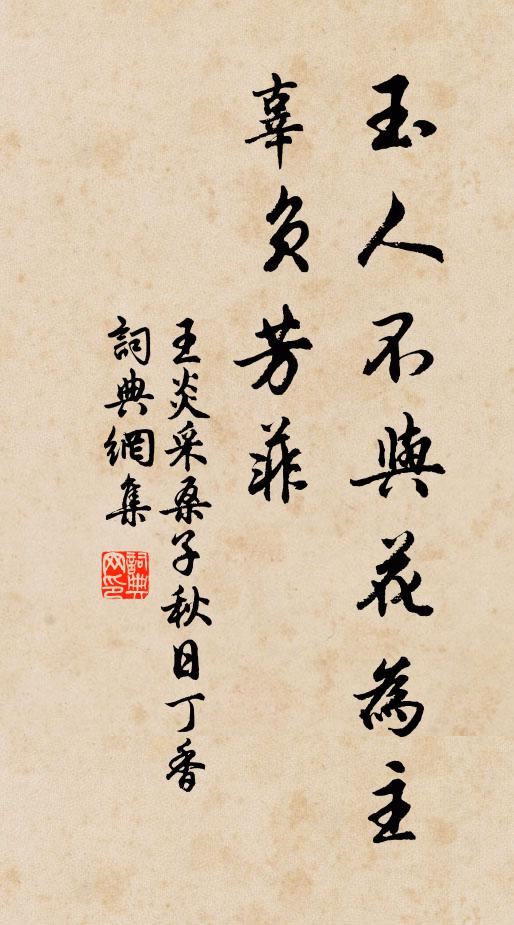 玉人不與花為主
辜負芳菲
王炎采桑子秋日丁香
詞典網集
詞典
网印